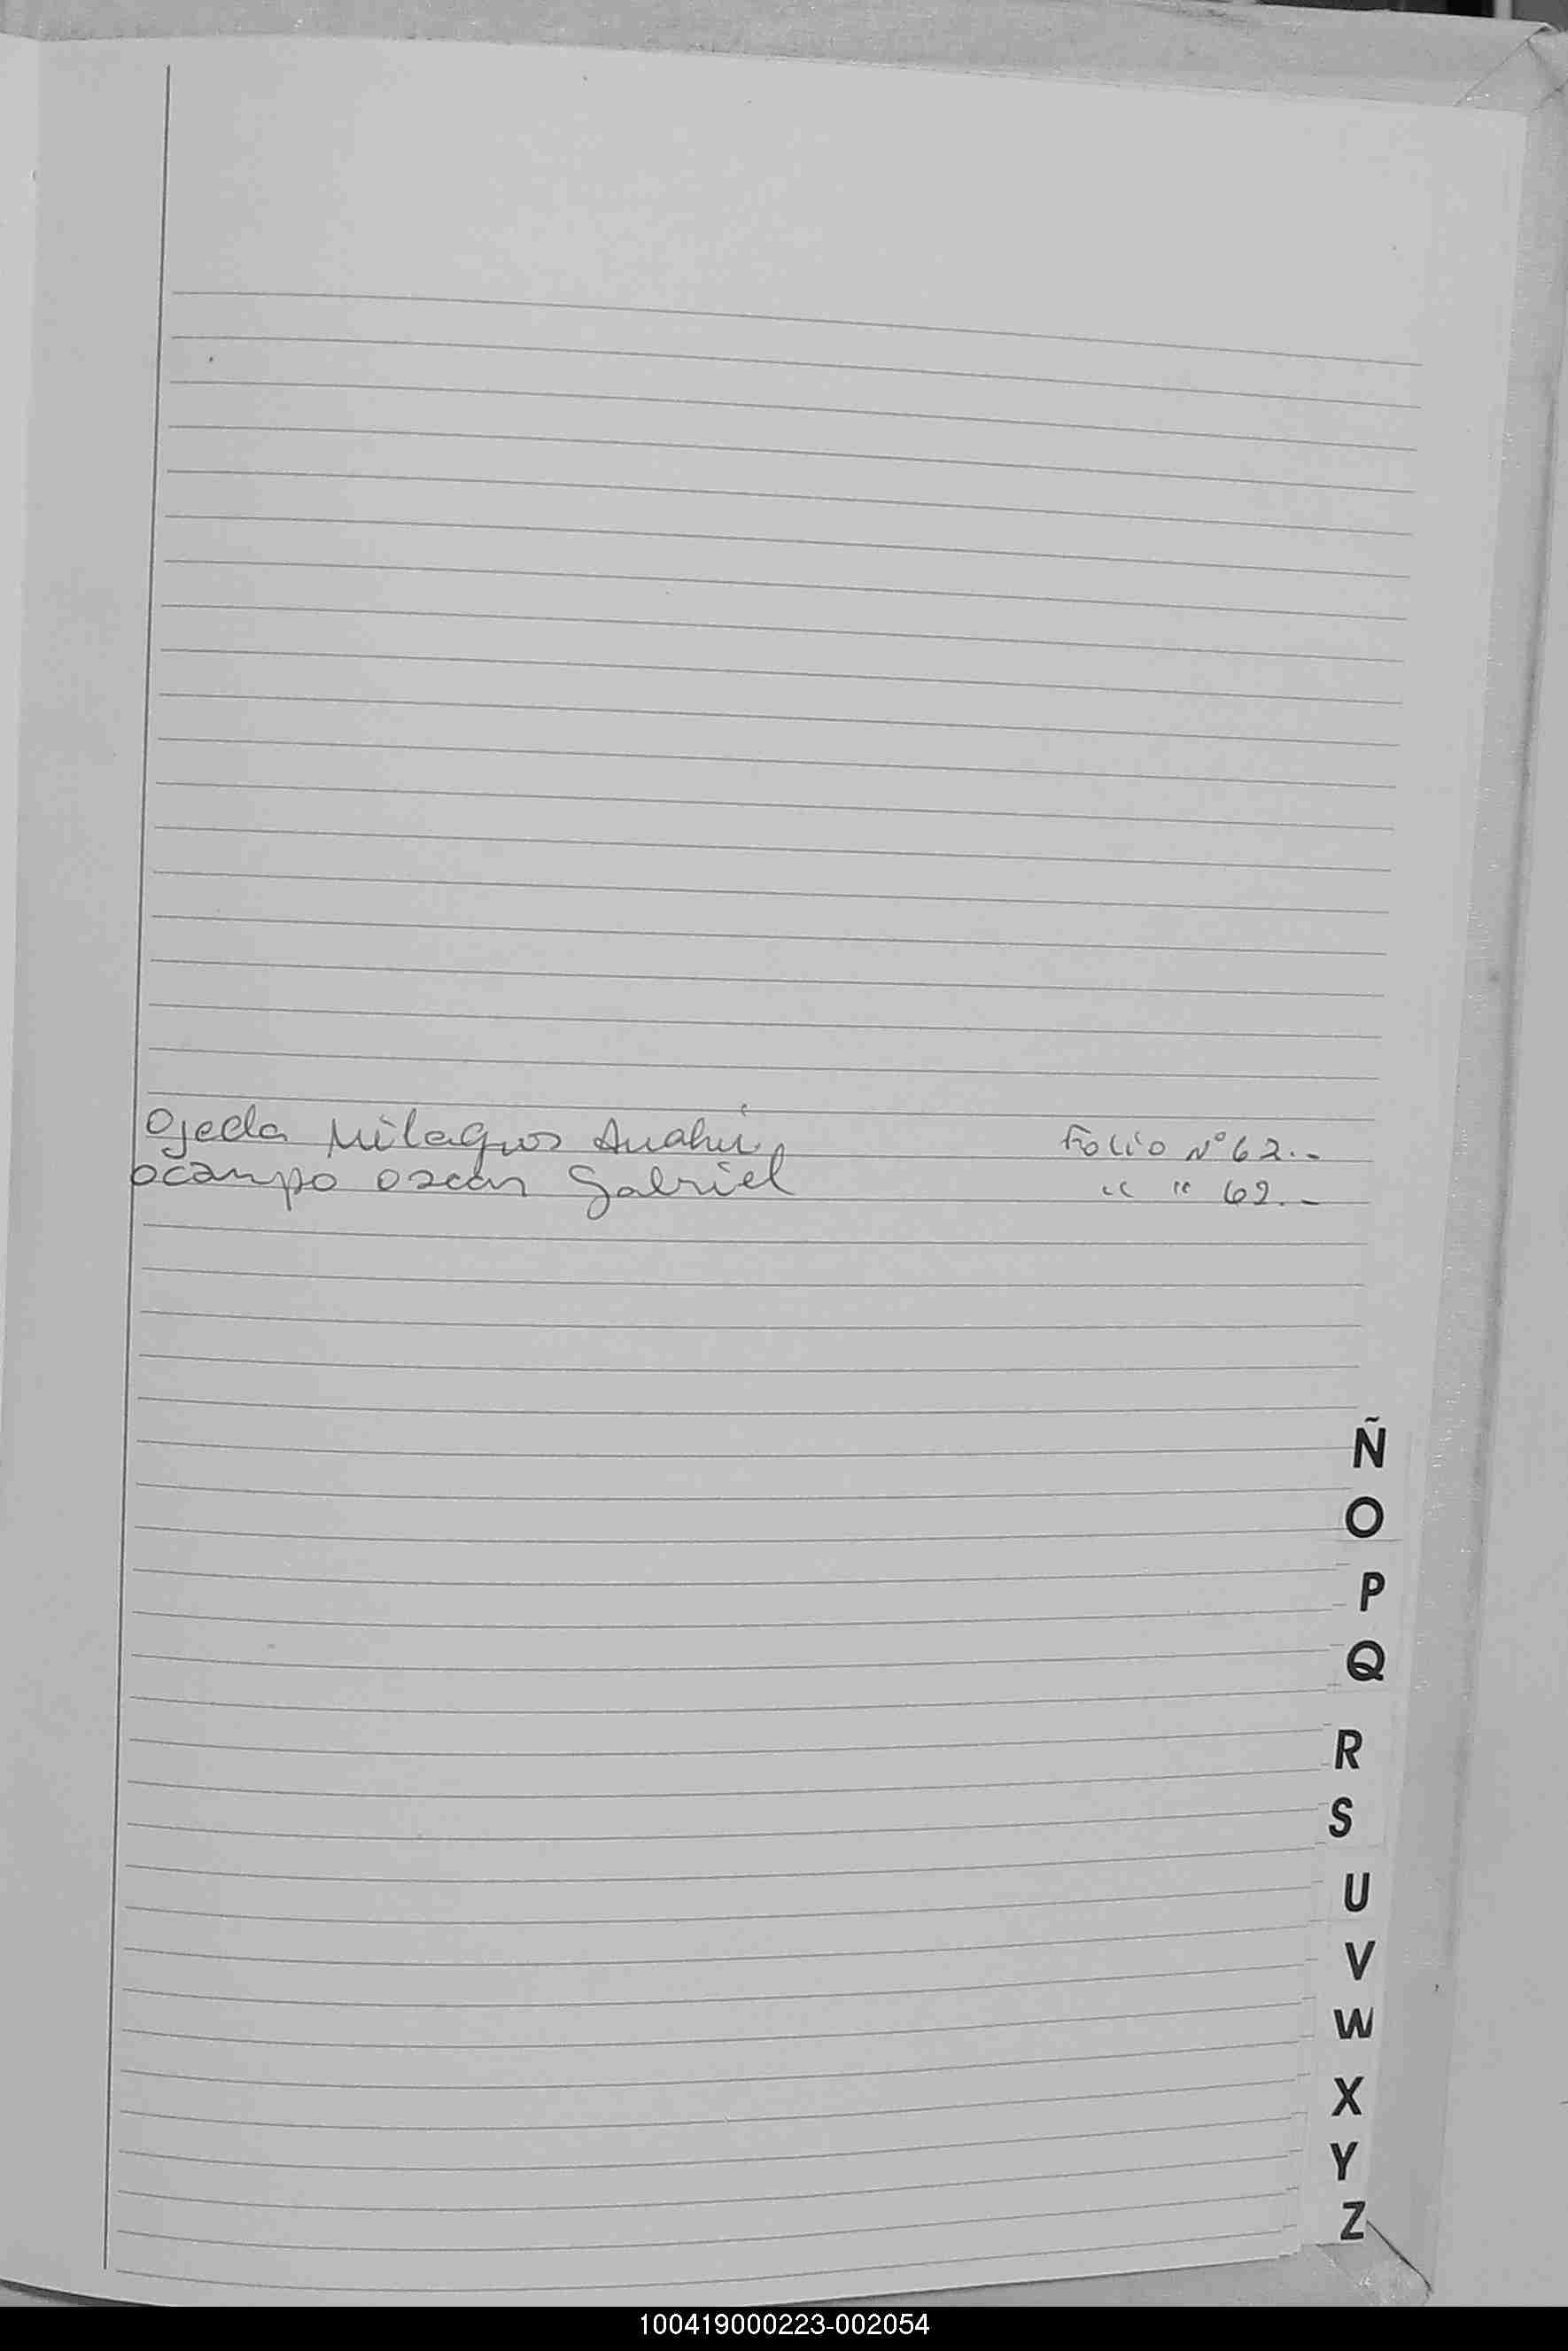 Ojeda Milagros Anahí Folio Nº 62.-
ocampo oscar Gabriel “ “ 69.-
Ñ
O
P
Q
R
S
U
V
W
X
Y
Z
100419000223-002054